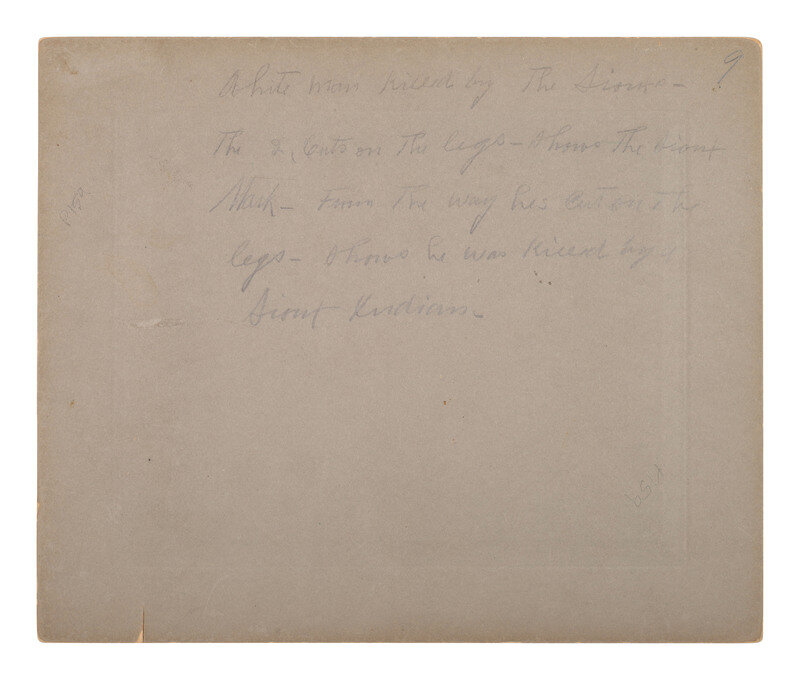 White man Killed by The Sioux – 9
The 2, Cuts on The legs – Shows The Sioux
Mark – From The way hes Cut on the
legs – Shows he was Killed by
Sioux Indians –